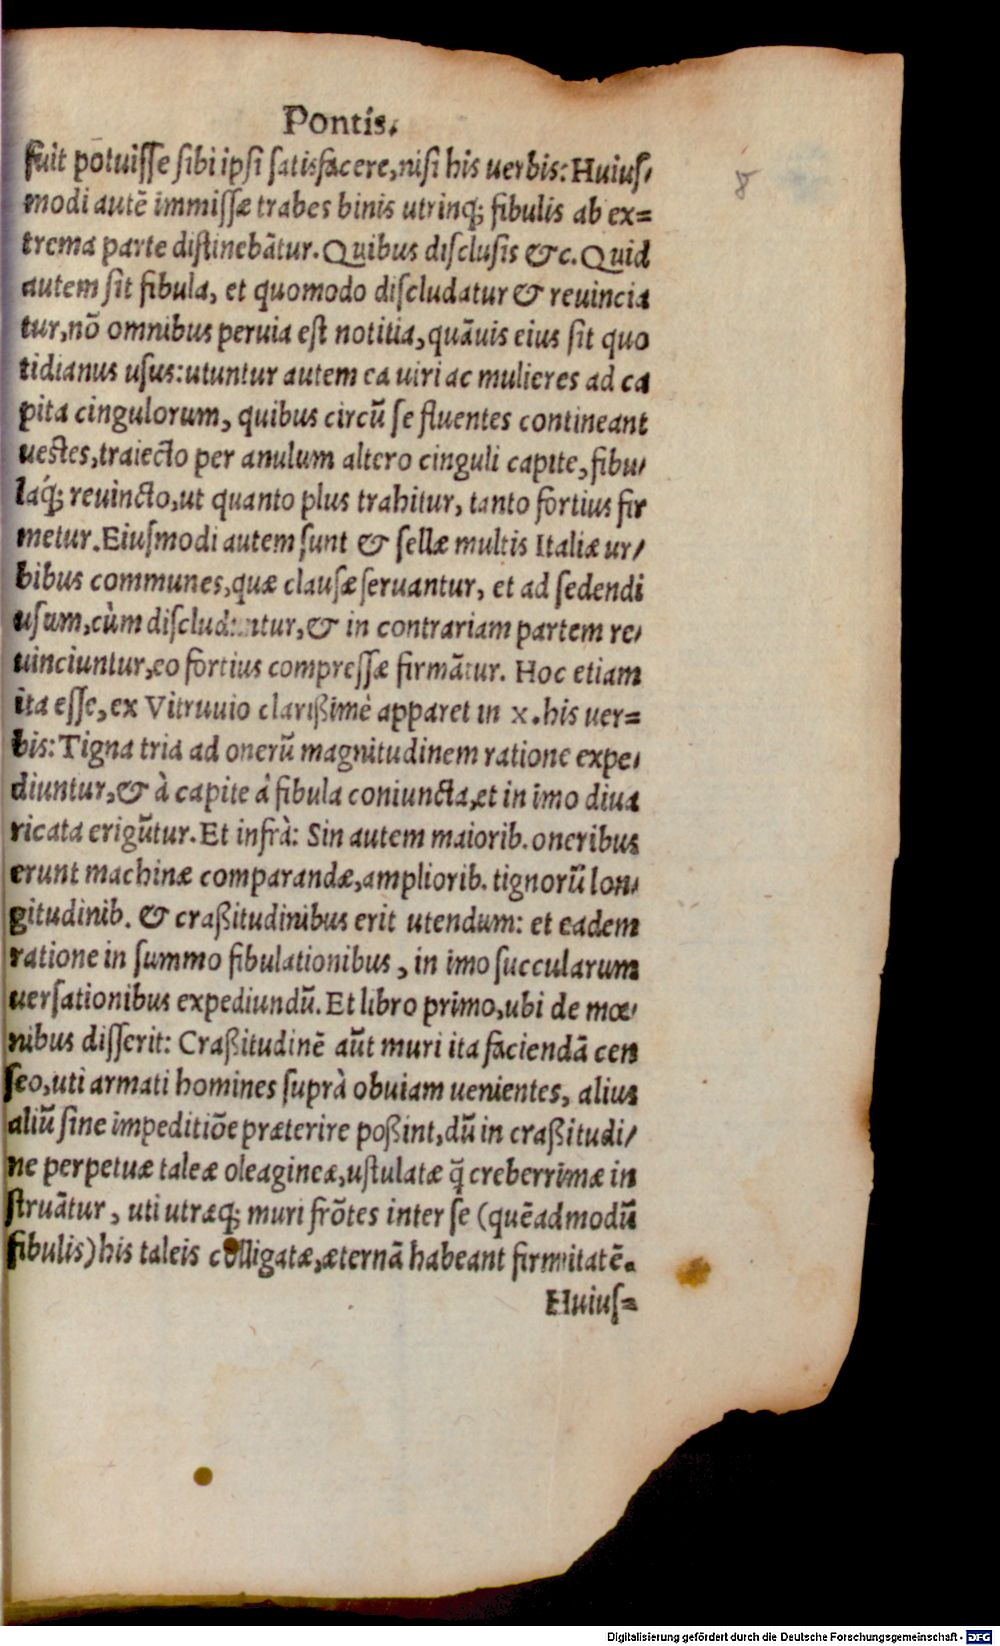 Pontis.
8
fuit potuisse sibi ipsi satisfacere, nisi his uerbis: Huius,
modi autē immissæ trabes binis utrinq; fibulis ab ex=
trema parte distinebātur. Quibus disclusis &c. Quid
autem sit fibula, et quomodo discludatur & reuincia
tur, nō omnibus peruia est notitia, quāuis eius sit quo
tidianus usus: utuntur autem ea uiri ac mulieres ad ca
pita cingulorum, quibus circū se fluentes contineant
uestes, traiecto per anulum altero cinguli capite, fibu,
laq́; reuincto, ut quanto plus trahitur, tanto fortius fir
metur. Eiusmodi autem sunt & sellæ multis Italiæ ur,
bibus communes, quæ clausæ seruantur, et ad sedendi
usum, cùm discluduntur, & in contrariam partem re,
uinciuntur, eo fortius compressæ firmātur. Hoc etiam
ita esse, ex Vitruuio clarißimè apparet in x. his uer=
bis: Tigna tria ad onerū magnitudinem ratione expe,
diuntur, & à capite à fibula coniuncta, et in imo diua
ricata erigūtur. Et infrà: Sin autem maiorib. oneribus
erunt machinæ comparandæ, ampliorib. tignorū lon,
gitudinib. & craßitudinibus erit utendum: et eadem
ratione in summo fibulationibus, in imo succularum
uersationibus expediundū. Et libro primo, ubi de mœ,
nibus disserit: Craßitudinē aūt muri ita faciendā cen
seo, uti armati homines suprà obuiam uenientes, alius
aliū sine impeditiōe præterire poßint, dū in craßitudi,
ne perpetuæ taleæ oleagineæ, ustulatæ q̄ creberrimæ in
struātur, uti utræq; muri frōtes inter se (quēadmodū
fibulis) his taleis colligatæ, æternā habeant firmitatē.
Huius=
Digitalisierung gefördert durch die Deutsche Forschungsgemeinschaft - DFG